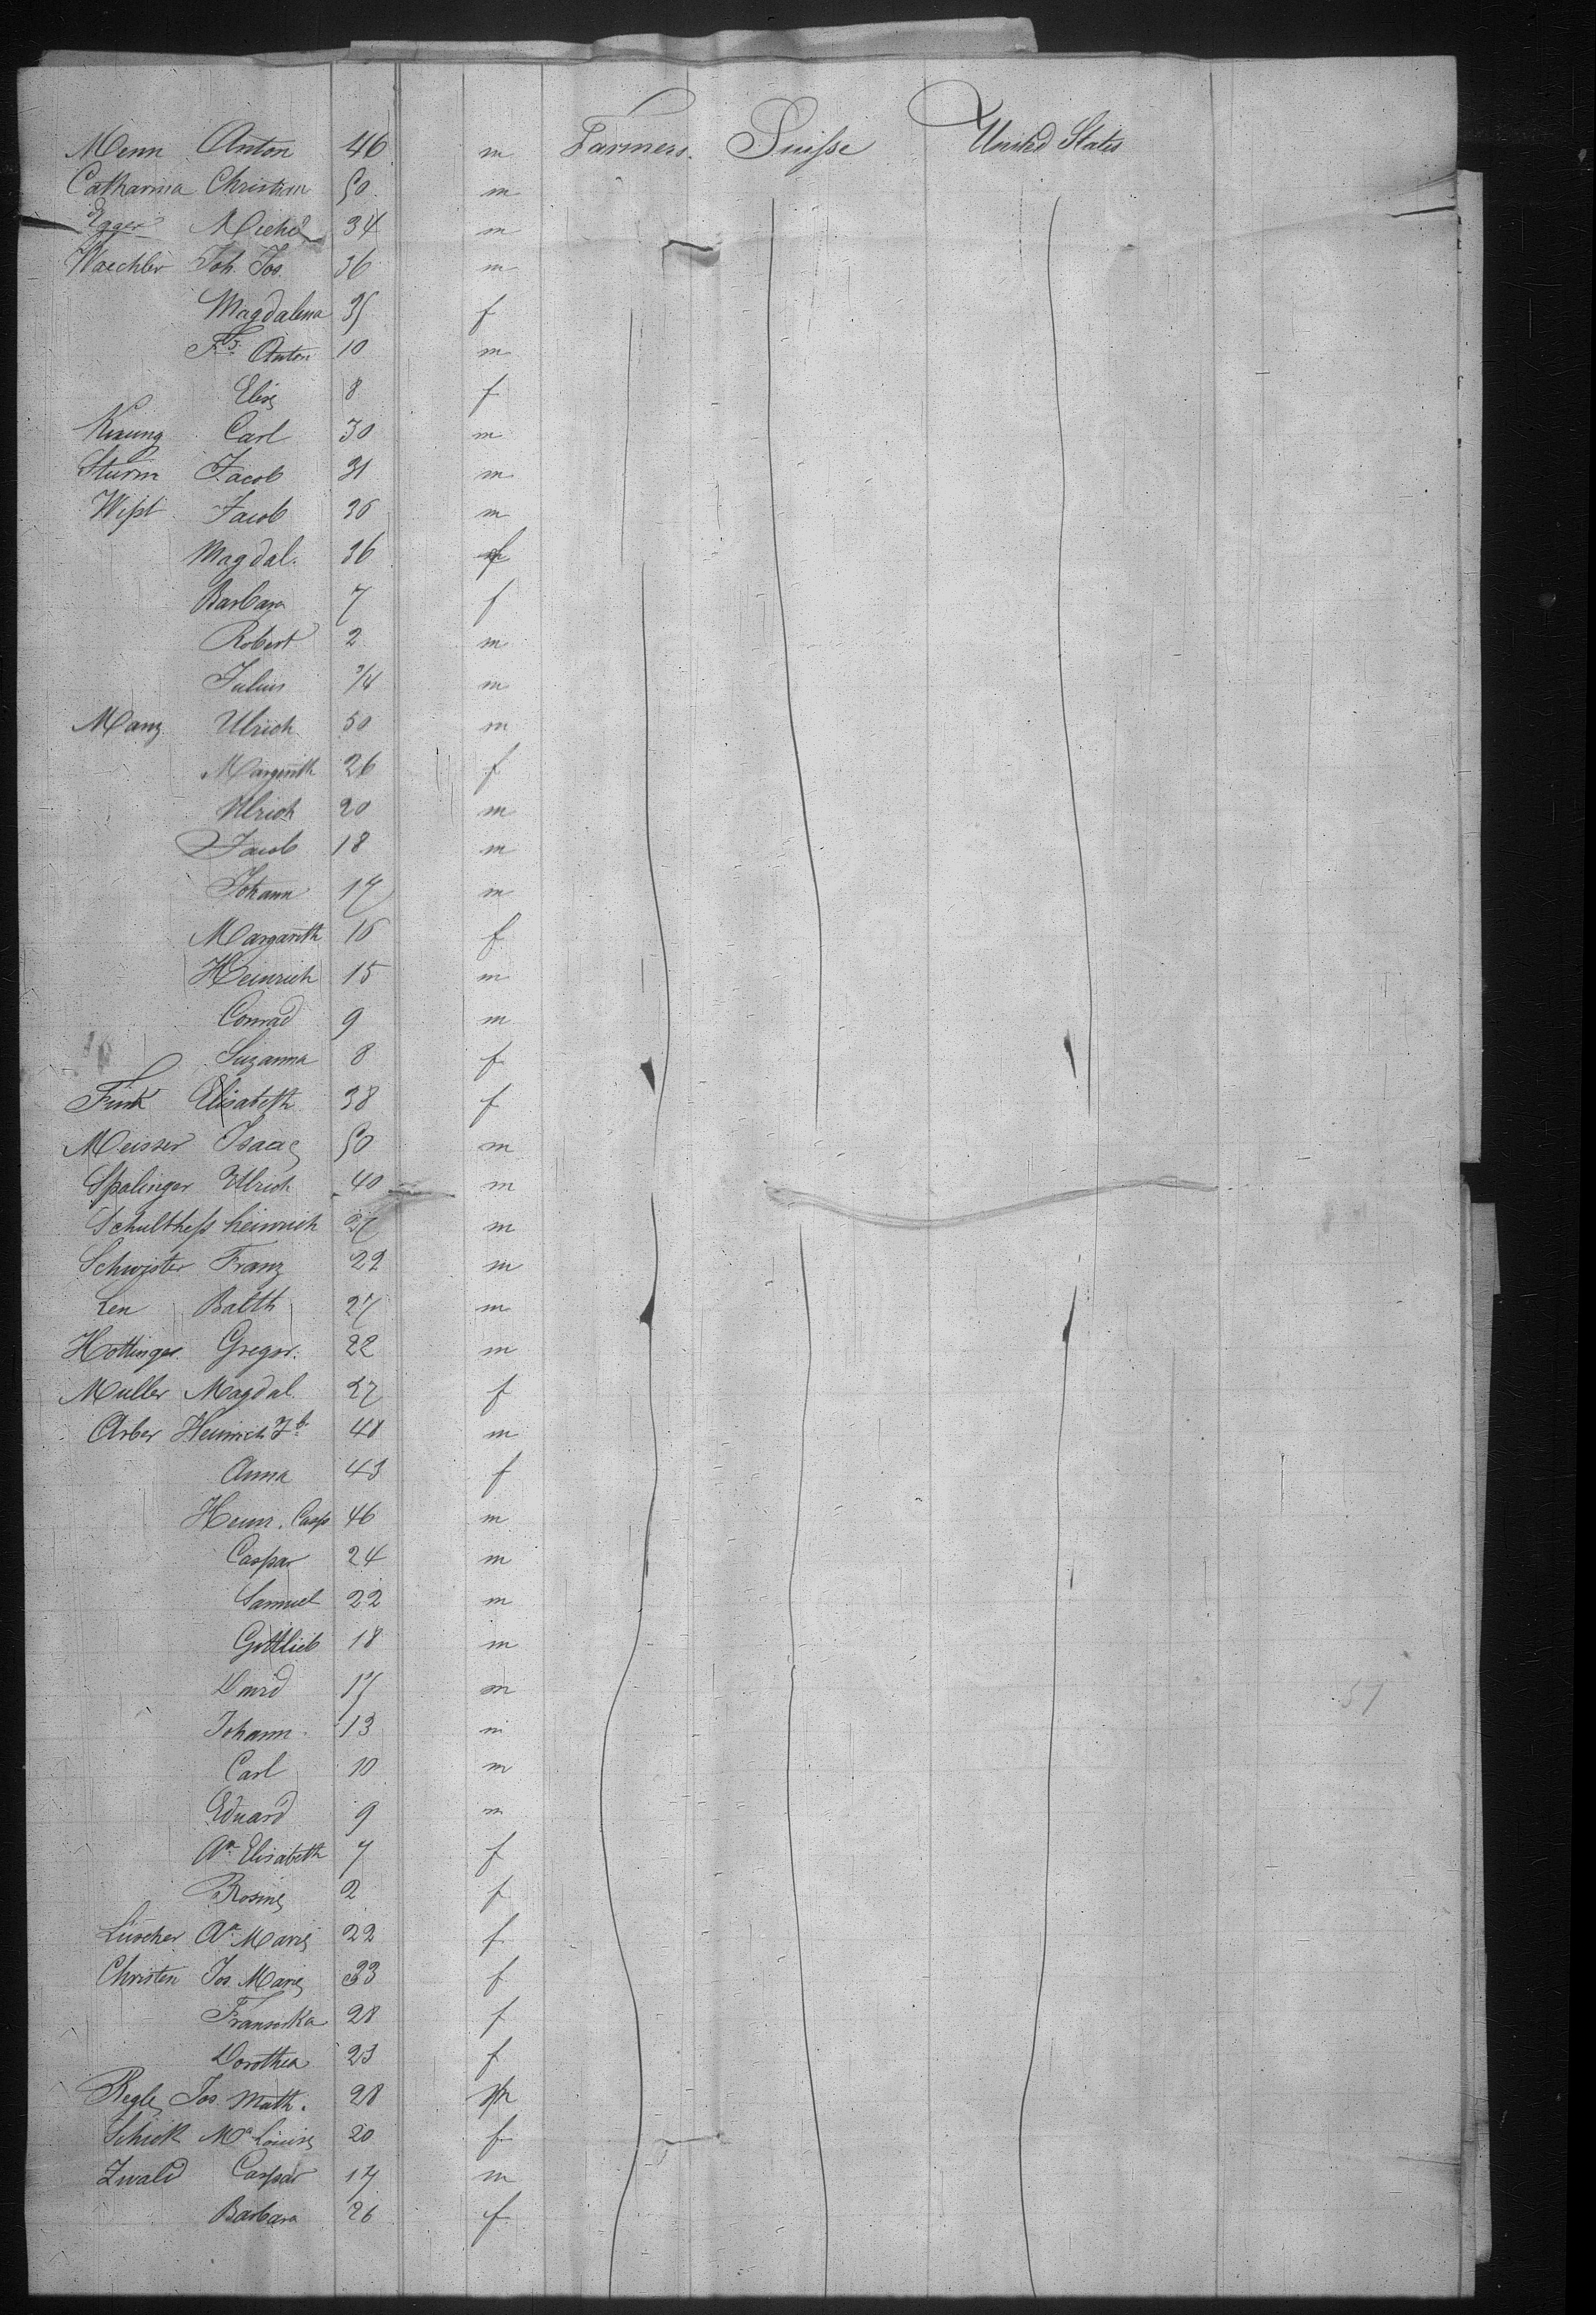 Menn Anton 46 m Farmers. Suisse United States
Catharina Christian 50 m
Egger Michel 34 m
Waechler Joh. Jos. 36 m
Magdalena 35 f
Fs. Anton 10 m
Elise 8 f
Carl 30 m
Sturm Jacob 31 m
Wisst Jacob 36 m
Magdal. 36 f
Barbara 7 f
Robert 2 m
Julius 3/4 m
Manz Ulrich 50 m
Margarith 26 f
Ulrich 20 m
Jacob 18 m
Johann 17 m
Margarith 16 f
Heinrich 15 m
Conrad 9 m
Suzanna 8 f
Fink Elisabeth 38 f
Meisser Isaac 50 m
Spalinger Ulrich 40 m
Schulthess heinrich 27 m
Schwister Franz 22 m
Len Balth 27 m
Hottinger Gregor. 22 m
Muller Magdal. 27 f
Arber Heinrich Jb. 48 m
Anna 43 f
Heinr. Casp 46 m
Caspar 24 m
Samuel 22 m
Gottlieb 18 m
David 15 m
Johann 13 m
Carl 10 m
Eduard 9 m
Aa. Elisabeth 7 f
Rosine 2 f
Lüscher Aa. Marie 22 f
Christen Jos. Marie 33 f
Franziska 28 f
Dorothea 23 f
Regle Jos. Math. 28 m
Schick Ma. Louise 20 f
Zwald Caspar 17 m
Barbara 26 f